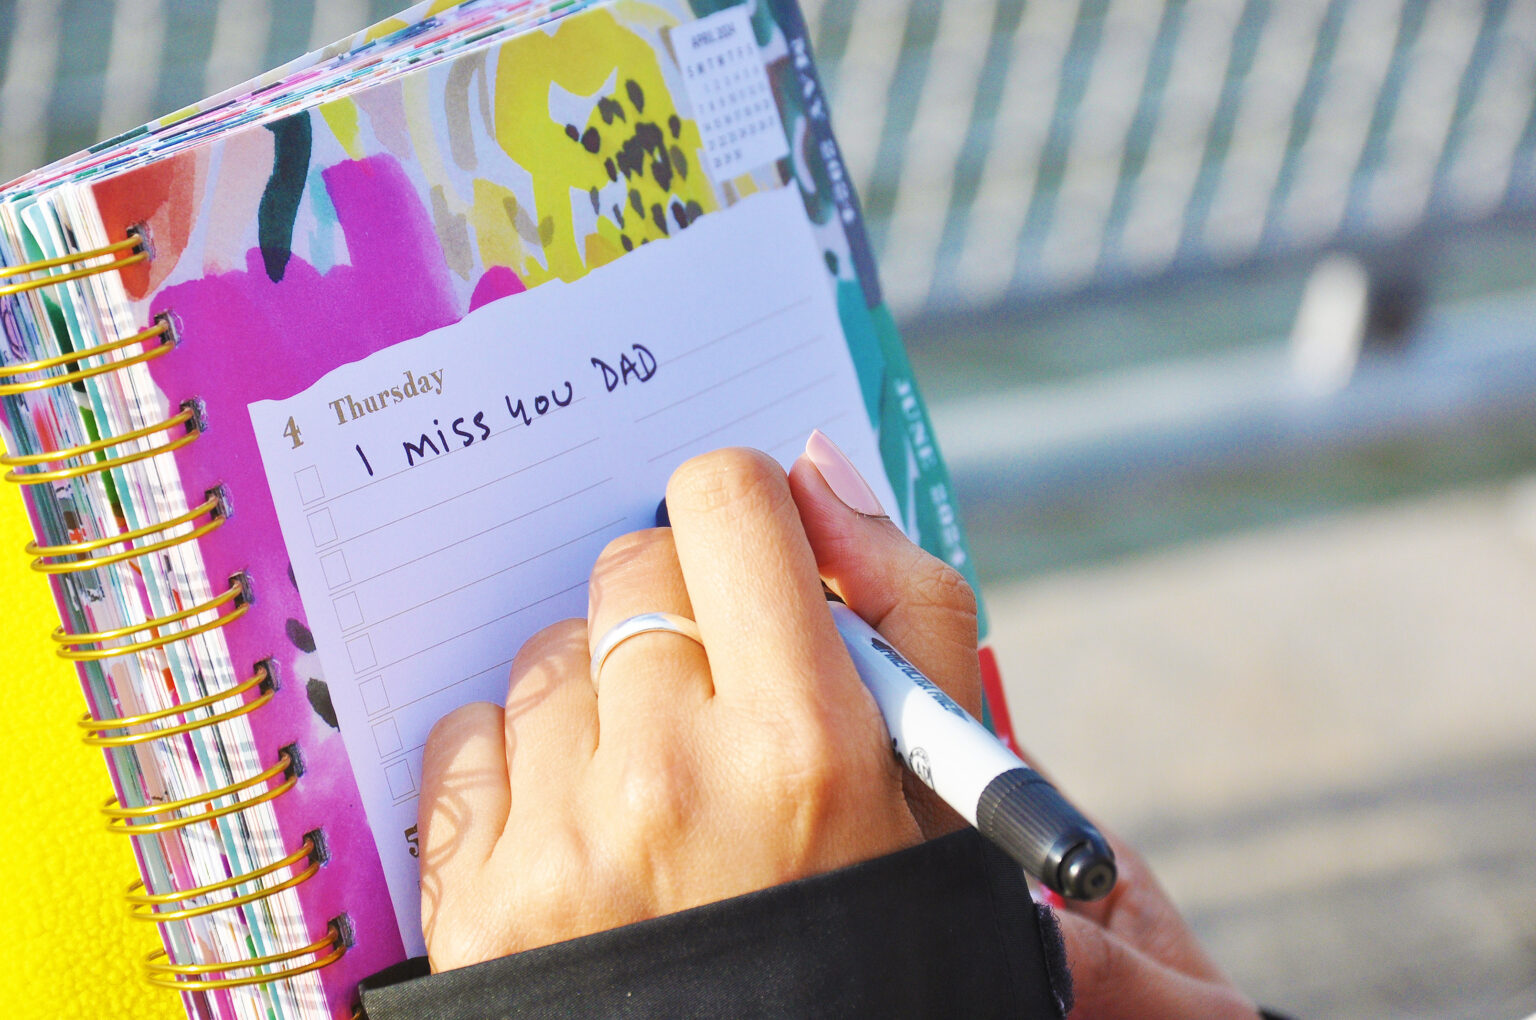 APRIL 2024
S M T W T F S
MAY 2024
4 Thursday
I miss you DAD
JUNE 2024
5